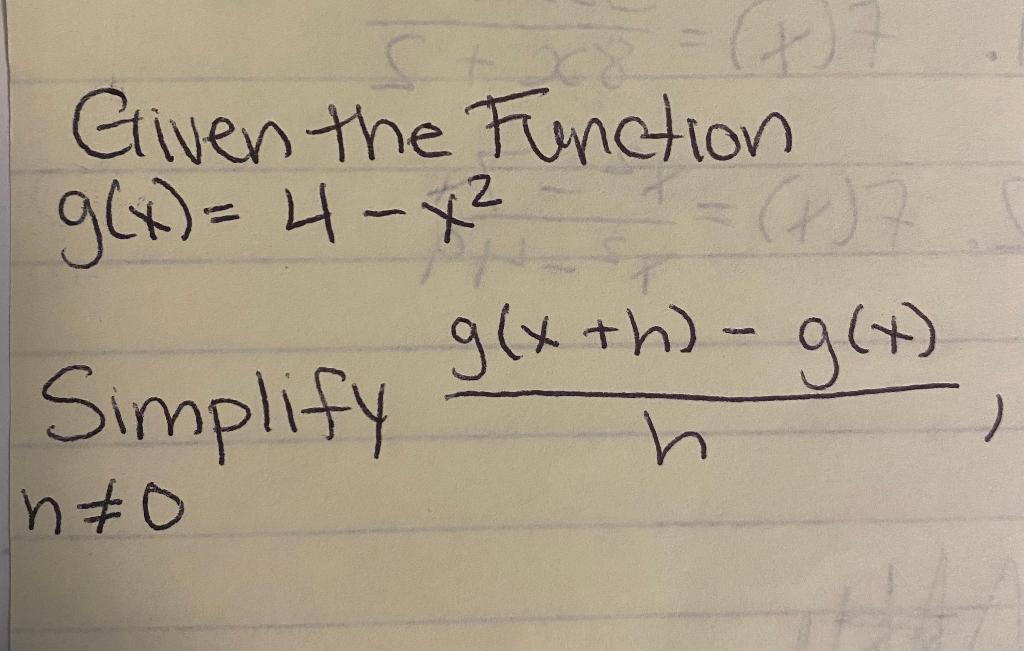 Given the Function
g(x) = 4 - x²
Simplify g(x + h) - g(x) / h ,
h ≠ 0